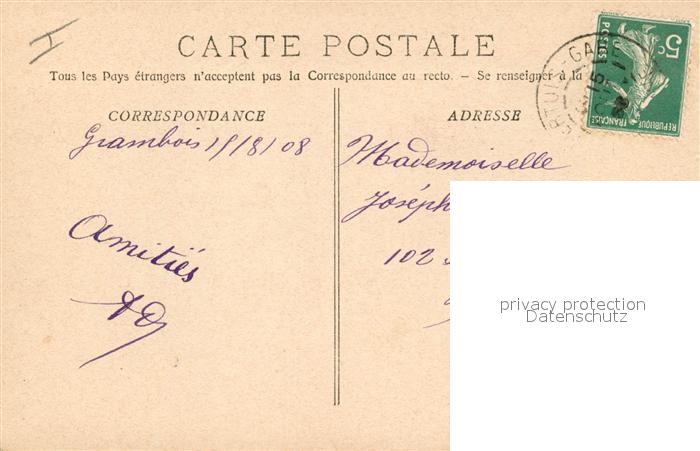 CARTE POSTALE
Tous les Pays étrangers n'acceptent pas la Correspondance au recto. — Se renseigner à la
CORRESPONDANCE
ADRESSE
Grambois 15/8/08
Mademoiselle
Joséph
102
Amitiés
AD
5c
POSTES
REPUBLIQUE FRANÇAISE
privacy protection
Datenschutz